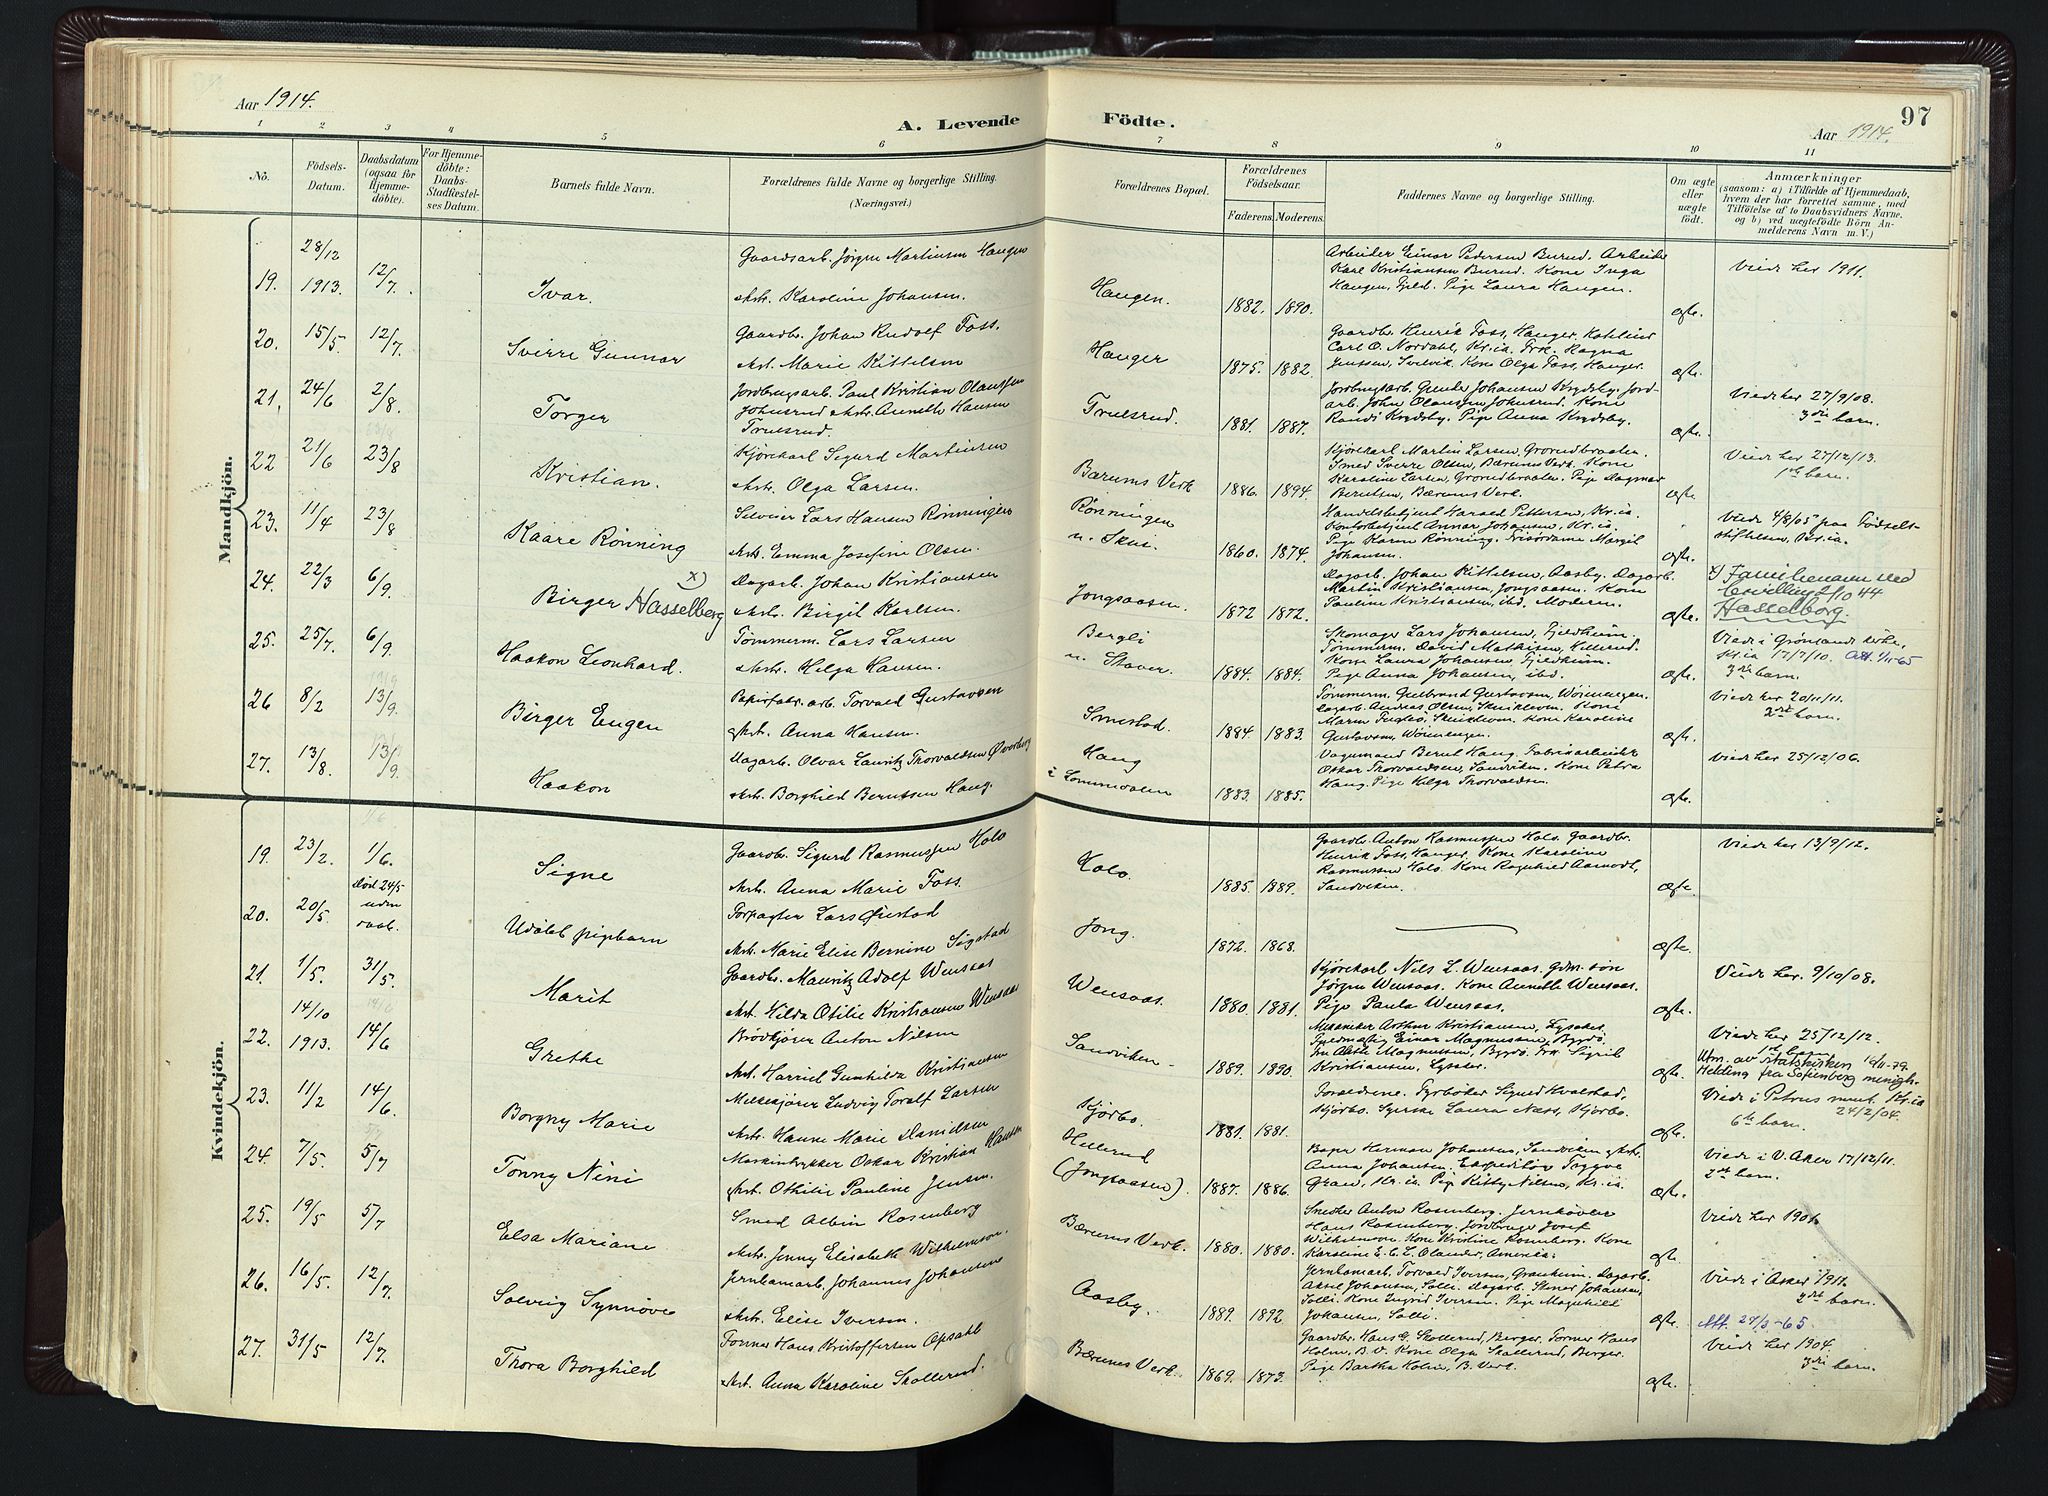 Aar 1914.
A. Levende Födte.
97
Aar 1914.
1 2 3 4 5 6 7 8 9 10 11
Nô.
Födsels-Datum.
Daabsdatum (ogsaa for Hjemmedöbte).
For Hjemmedöbte: Daabs-Stadfæstelses Datum.
Barnets fulde Navn.
Forældrenes fulde Navne og borgerlige Stilling. (Næringsvei.)
Forældrenes Bopæl.
Forældrenes Födselsaar.
Faderens. Moderens.
Faddernes Navne og borgerlige Stilling.
Om ægte eller uægte födt.
Anmærkninger
(saasom: a) i Tilfælde af Hjemmedaab, hvem der har forrettet samme, med Tilföielse af to Daabsvidners Navne, og b) ved uægtefödte Börn Anmelderens Navn m. V.)
Mandkjön.
19. 28/12 1913. 12/7. Ivar.
Gaardsarb. Jörgen Martinsen Haugen
Karoline Johansen.
Haugen. 1882. 1890.
Arbeider Einar Pedersen Burud. Arbeider
Karl Kristiansen Burud. Kone Inga
Haugen, Fjeld. Pige Laura Haugen.
ægte. Viede her 1911.
20. 15/5. 12/7. Sverre Gunnar
Gaardbr. Johan Rudolf Foss.
Marie Kittelsen
Hauger 1875. 1882.
Gaardbr. Henrik Foss, Hauger.
Carl O. Nordahl, Kr.ia. Frk. Ragna
Jenssen, Svelvik. Kone Olga Foss, Hauger.
ægte.
21. 24/6 2/8. Torger
Jordbrugsarb. Paul Kristian Olaussen
Johnsrud Annette Hansen
Truelsrud.
Truelsrud. 1881. 1887.
Jordbrugsarb. Johansen Krydsby. Jord-
arb. John Olaussen Johnsrud. Kone
Randi Krydsby. Pige Anna Krydsby.
ægte. Viede her 27/9/08.
3die barn.
22 21/6 23/8 Kristian.
Kjörekarl Sigurd Martinsen
Olga Larsen.
Bærums Verk 1886. 1894.
Kjörekarl Martin Larsen, Grorudbraaten.
Smed Sverre Olsen, Bærums Verk. Kone
Karoline Larsen, Grorudbraaten. Pige Dagmar
Berntsen, Bærums Verk.
ægte Viede her 27/12/13.
1ste barn.
23. 11/4 23/8 Kaare Rønning
Lars Hansen Rønningen
Emma Josefine Olsen.
Rønningen
n. Skui. 1860. 1874.
Handelsbetjent Harald Pettersen, Kr.ia.
Kontorbetjent Annar Johansen, Kr.ia.
Pige Karen Rønning. Frisørdame Margit
Johansen.
ægte. Viede 4/8/05 paa Födsels-
stiftelsen, Kr.ia.
24. 22/3 6/9. Birger Hasselberg x)
Dagarb. Johan Kristiansen
Birgit Karlsen.
Jongsaasen. 1872 1872.
Dagarb. Johan Kittelsen, Aasby. Dagarb.
Martin Kristiansen, Jongsaasen. Kone
Pauline Kristiansen, ibd. Moderen.
ægte. x) Familienavn ved
bevilling 2/10 44
Hasselberg.
25. 25/7. 6/9. Haakon Leonhard.
Tömmerm. Lars Larsen
Helga Hansen.
Bergli
n. Staver. 1884. 1884.
Skomager Lars Johansen, Fjeldheim.
Tömmerm. David Mathisen, Hellerud.
Kone Laura Johansen, Fjeldheim.
Pige Anna Johansen, ibd.
ægte. Viede i Grönlands kirke,
Kr.ia 17/7/10. Att. 1/11-65
3die barn.
26 8/2 13/9. Birger Eugen
Papirfabr.arb. Torvald Gustavsen
Anna Hansen.
Smestad. 1884. 1883.
Tömmerm. Gulbrand Gustavsen, Wöiennengen.
Dagarb. Andreas Olsen, Skuikleven. Kone
Maren Fuglesö, Skuikleven. Kone Karoline
Gustavsen, Wöiennengen.
ægte. Viede her 20/11/11.
2det barn.
27. 13/8. 13/9. Haakon
Dagarb. Olvar Lauritz Thorvaldsen Øverberg
Borghild Berntsen Haug.
Haug
i Lommedalen 1883. 1885.
Vognmand Bernt Haug. Fabrikarbeider
Oskar Thorvaldsen, Sandviken. Kone Petra
Haug. Pige Helga Thorvaldsen.
ægte. Viede her 25/12/06.
Kvindekjön.
19. 23/2. 1/6. Signe
Gaardbr. Sigurd Rasmussen Holo
Anna Marie Foss.
Holo. 1885. 1889.
Gaardbr. Anton Rasmussen Holo. Gaardbr.
Henrik Foss, Hauger. Kone Karoline
Rasmussen Holo. Kone Ragnhild Aamodt,
Sandviken.
ægte. Viede her 13/9/12.
20. 20/5. Död 24/5 uden daab. Udöbt pigebarn
Forpagter Lars Øiestad
Marie Elise Bernine Sigstad
Jong. 1872. 1868.
ægte.
21. 1/5. 31/5. Marit
Gaardbr. Mauritz Adolf Wensaas
Hilda Otilie Kristiansen Wensaas
Wensaas. 1880. 1881.
Kjörekarl Nils L. Wensaas. Gdm. sön
Jörgen Wensaas. Kone Annette Wensaas.
Pige Paula Wensaas.
ægte. Viede her 9/10/08.
22. 14/10 1913. 14/6 Grethe
Brödkjörer Anton Nilsen
Harriet Gunhilda Kristiansen
Sandviken 1889. 1890.
Mekaniker Arthur Kristiansen, Lysaker.
Einar Magnussen, Bygdö.
Fru Magnussen, Bygdö. Frk. Sigrid
Kristiansen, Lysaker.
ægte Viede her 25/12/12.
1ste barn
Utm. av statskirken 16/11-79.
Melding fra Sofienberg menigh.
23. 11/2 14/6. Borgny Marie
Melkekjörer Ludvig Toralf Larsen
Hanne Marie Davidsen
Kjörbo. 1881. 1881.
Forældrene. Fyrböter Sigurd Kvalstad,
Kjörbo. Syerske Laura Næss, Kjörbo.
ægte. Viede i Petrus men. Kr.ia
24/2/04.
6te barn.
24. 7/5. 5/7 Tonny Nini
Maskintrykker Oskar Kristian Hansen
Othilie Pauline Jensen.
Hellerud
(Jongsaasen). 1887. 1886.
Bager Herman Johansen, Sandviken
Anna Johansen. Expeditör Trygve
Gran, Kr.ia. Pige Kitty Nilsen, Kr.ia.
ægte. Viede i V. Aker 17/12/11.
2det barn.
25. 19/5 5/7 Elsa Mariane
Smed Albin Rosenberg
Jenny Elisabeth Wilhelmson.
Bærums Verk. 1880. 1880.
Smelter Anton Rosenberg. Jernhandler
Hans Rosenberg. Jordbruger Josef
Wilhelmson. Kone Kristine Rosenberg. Kone
Karoline E. C. L. Olander, Amerika.
ægte. Viede her 1906
26. 16/5. 12/7. Solveig Synnöve
Jernbanearb. Johannes Johansen
Elise Iversen.
Aasby. 1889. 1892.
Jernbanearb. Torvald Iversen, Granheim. Dagarb.
Aksel Johansen, Solli. Dagarb. Stener Johansen,
Solli. Kone Ingrid Iversen. Pige Magnhild
Johansen, Solli.
ægte. Viede i Asker 1911.
2det barn.
Att. 27/3-65.
27. 31/5 12/7. Thora Borghild
Former Hans Kristoffersen Opsahl
Anna Karoline Skollerud.
Bærums Verk. 1869. 1873.
Gaardbr. Hans G. Skollerud, Berger. Former Hans
Holm, B.V. Kone Olga Skollerud, Berger.
Pige Bertha Holm, B. Verk.
ægte. Viede her 1904.
3die barn.